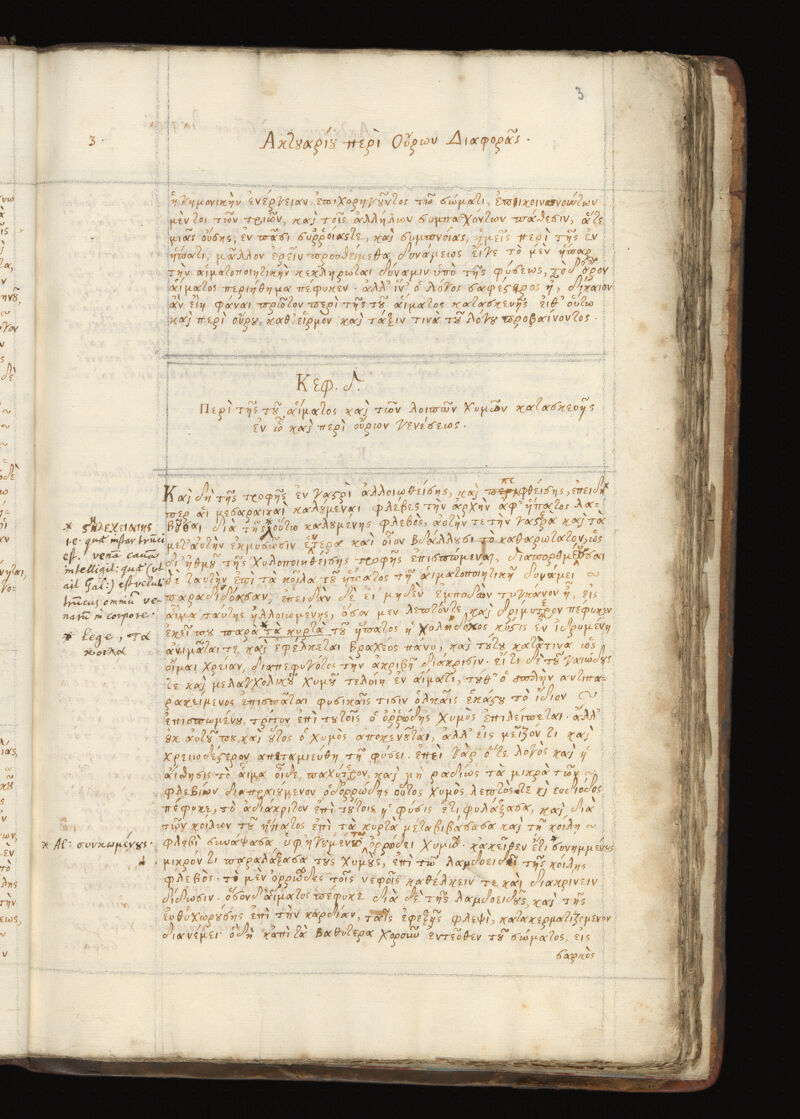 3
3.
Ακτουαρίου περὶ Οὔρων Διαφορᾶς.
ἡγημονικὴν ἐνέργειαν ἐπιχορηγοῦντος τῶ σώματι, ἐπικοινωνούντων
μέντοι τῶν τριῶν, καὶ τοῖς ἀλλήλων συμπασχόντων πάθεσιν, ἅτε
μιᾶς οὔσης, ἐν πᾶσι συῤῥοίας τε, καὶ συμπνοίας, ἡμεῖς περὶ τῆς ἐν
ἥπατι, μᾶλλον ἐρεῖν προυθέμεθα δυνάμεως εἴγε τὸ μὲν ἧπαρ
τὴν αἱματοποιητικὴν κεκλήρωται δύναμιν ὑπὸ τῆς φύσεως, τὸ δ' οὖρον
αἵματος περιήθημα πέφυκεν. ἀλλ' ἵν' ὁ λόγος σαφέστερος ᾖ, δίκαιον
ἂν εἴη φάναι πρῶτον περὶ τῆς τοῦ αἵματος κατασκευῆς εἶθ' οὕτω
καὶ περὶ οὔρου, καθ' εἱρμὸν καὶ τάξιν τινὰ τοῦ λόγου προβαίνοντος.
Κεφ. δ.
Περὶ τῆς τοῦ αἵματος καὶ τῶν λοιπῶν χυμῶν κατασκευῆς
ἐν ᾧ καὶ περὶ οὔρων γενέσεως.
Καὶ δὴ τῆς τροφῆς ἐν γαστρὶ ἀλλοιωθείσης, καὶ πεφθείσης, ἐπειδή
περ αἱ μεσαραικαὶ καλούμεναι φλέβες τὴν ἀρχὴν ἀφ' ἥπατος λα-
βοῦσαι διὰ τῆς οὕτω καλουμένης φλεβός, αὐτήν τε τὴν γαστέρα καὶ τὰ
μετ' αὐτὴν ἐκμυζῶσιν ἔντερα καὶ οἷον βδάλλουσι τὸ καθαρώτατον, ὡς
δι' ἠθμοῦ τῆς χυλοποιηθείσης τροφῆς ἐπισπώμεναι, διαπορθμεύουσαι
δὲ ταύτην ἐπὶ τὰ κοῖλα τοῦ ἥπατος τῇ αἱματοποιητικῇ δυνάμει
παραδιδόασιν, ἐπειδὰν δὲ εἰ μηδὲν ἐμποδὼν τυγχάνον ᾖ, εἰς
αἷμα ταύτης ἠλλοιωμένης, ὅσον μὲν λεπτόν τε, καὶ δριμύτερον πέφυκεν
ἐκεῖ που παρὰ τὰ κυρτὰ τοῦ ἥπατος ἡ χοληδόχος κύστις ἐν ἱδρυμένη
ἀνιμᾶταί τε καὶ ἐφέλκεται βραχέος πάνυ, καὶ τούτου κατά τινα ὡς
οἶμαι χρείαν, διαπεφυγότος τὴν ἀκριβῆ διάκρισιν. εἴ τι δὲ τοῦ γαιώδους
τε καὶ μελαγχολικοῦ χυμοῦ τελοίη ἐν αἵματι, τοῦθ' ὁ σπλὴν ἀντιπα-
ρακείμενος ἐπισπᾶται φυσικαῖς τισὶν ὁλκαῖς ἑκάστου τὸ ἴδιον
ἐπισπωμένου, τρίτον ἐπὶ τούτοις ὁ ὀῤῥώδης χυμὸς ἐπιλείπεται. ἀλλ'
οὐκ αὐτοῦ που καὶ οὗτος ὁ χυμὸς ἀποκενοῦται, ἀλλ' εἰς μεῖζόν τι καὶ
χρειωδέστερον ἀπεταμιεύθη τῇ φύσει. ἐπεὶ γὰρ ὅ τε λόγος καὶ ἡ
αἴσθησις τὸ αἷμα οἶδε, παχύτερον, καὶ μὴ ῥαδίως τὰ μικρὰ τῶν
φλεβίων διαπεραιούμενον ὁ δ' ὀῤῥώδης οὗτος χυμὸς λεπτός τε καὶ εὐδίοδος
πέφυκε, τὸ ἀδιάκριτον ἐπὶ τούτοις ἡ φύσις ἔτι φυλάξασα, καὶ διὰ
τῶν κοίλων τοῦ ἥπατος ἐπὶ τὰ κυρτὰ μεταβιβάσασα καὶ τῇ κοίλῃ
φλεβὶ συνάψασα ὑφηγεμένω ὀῤῥώδει χυμῷ. κἀκεῖθεν ἔτι συνημμένους
μικρόν τι παραλλάξασα τοὺς χυμούς, ἐπὶ τῷ λαμδοειδεῖ τῆς κοίλης
φλεβός. τὸ μὲν ὀῤῥῶδες τοῖς νεφροῖς καθέλκειν τε καὶ διακρίνειν
δίδωσιν. ὅσον δ' αἵματος πέφυκε διὰ δὲ τῆς λαμδοειδοῦς, καὶ τῆς
εὐθυχωρούσης ἐπὶ τὴν καρδίαν, ταῖς ἐφεξῆς φλεψὶ, κατακερματιζόμενον
διανέμει. ὃ δὴ κἀπὶ τὰ βαθύτερα χωροῦν ἐντεῦθεν τοῦ σώματος, εἰς
σαρκὸς
* στελεχειαίης
i.e. quæ instar trunci
est. venā cauā
intelligit: quæ (ut
ait Gal:) est velut
truncus omniū ve-
narū in corpore.
* lege, τὰ
κοῖλα
* Al: συνκωμένους.